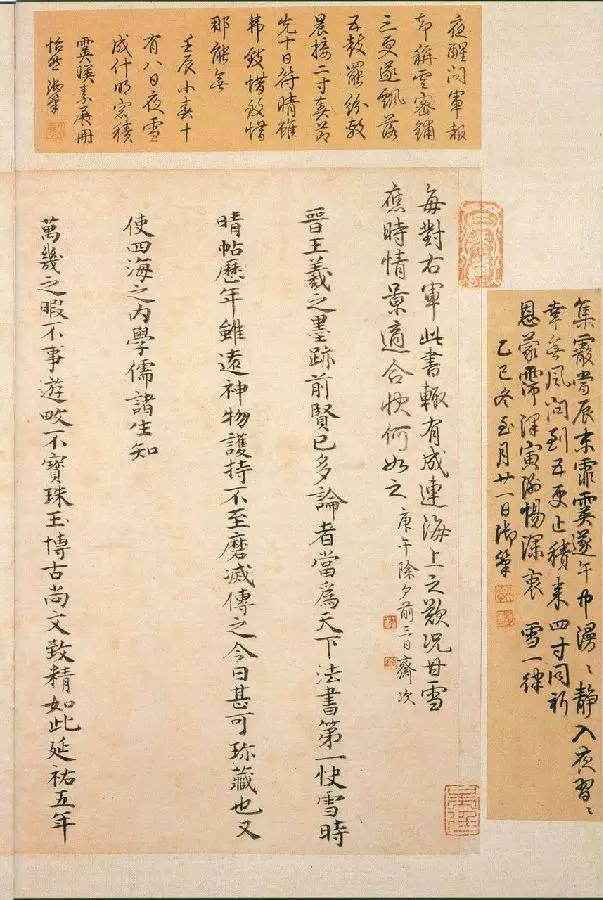 集霰當辰末霏霙遂午中漫〻靜入夜習〻
幸無風問到五更止積來四寸同祈
恩蒙霈澤寅 惕深衷 雪一律
乙巳冬至月廿一日御筆
夜醒問軍報
却稱雲密鋪
三更遂飄落
五鼓罷紛敷
晨接二寸奏節
先十日符晴雖
弗致惜致惜
那能無
壬辰小春十
有八日夜雪
成什明窓積
霙暎素展冊
怡然御筆
每對右軍此書輒有成連海上之歎況甘雪
應時情景適合快何如之 庚午除夕前三日齋次
晉王羲之墨跡前賢已多論者當爲天下法書第一快雪時
晴帖歷年雖遠神物護持不至磨滅傳之今日甚可珎藏也又
使四海之内學儒諸生知
萬幾之暇不事遊畋不寶珠玉博古尚文致精如此延祐五年